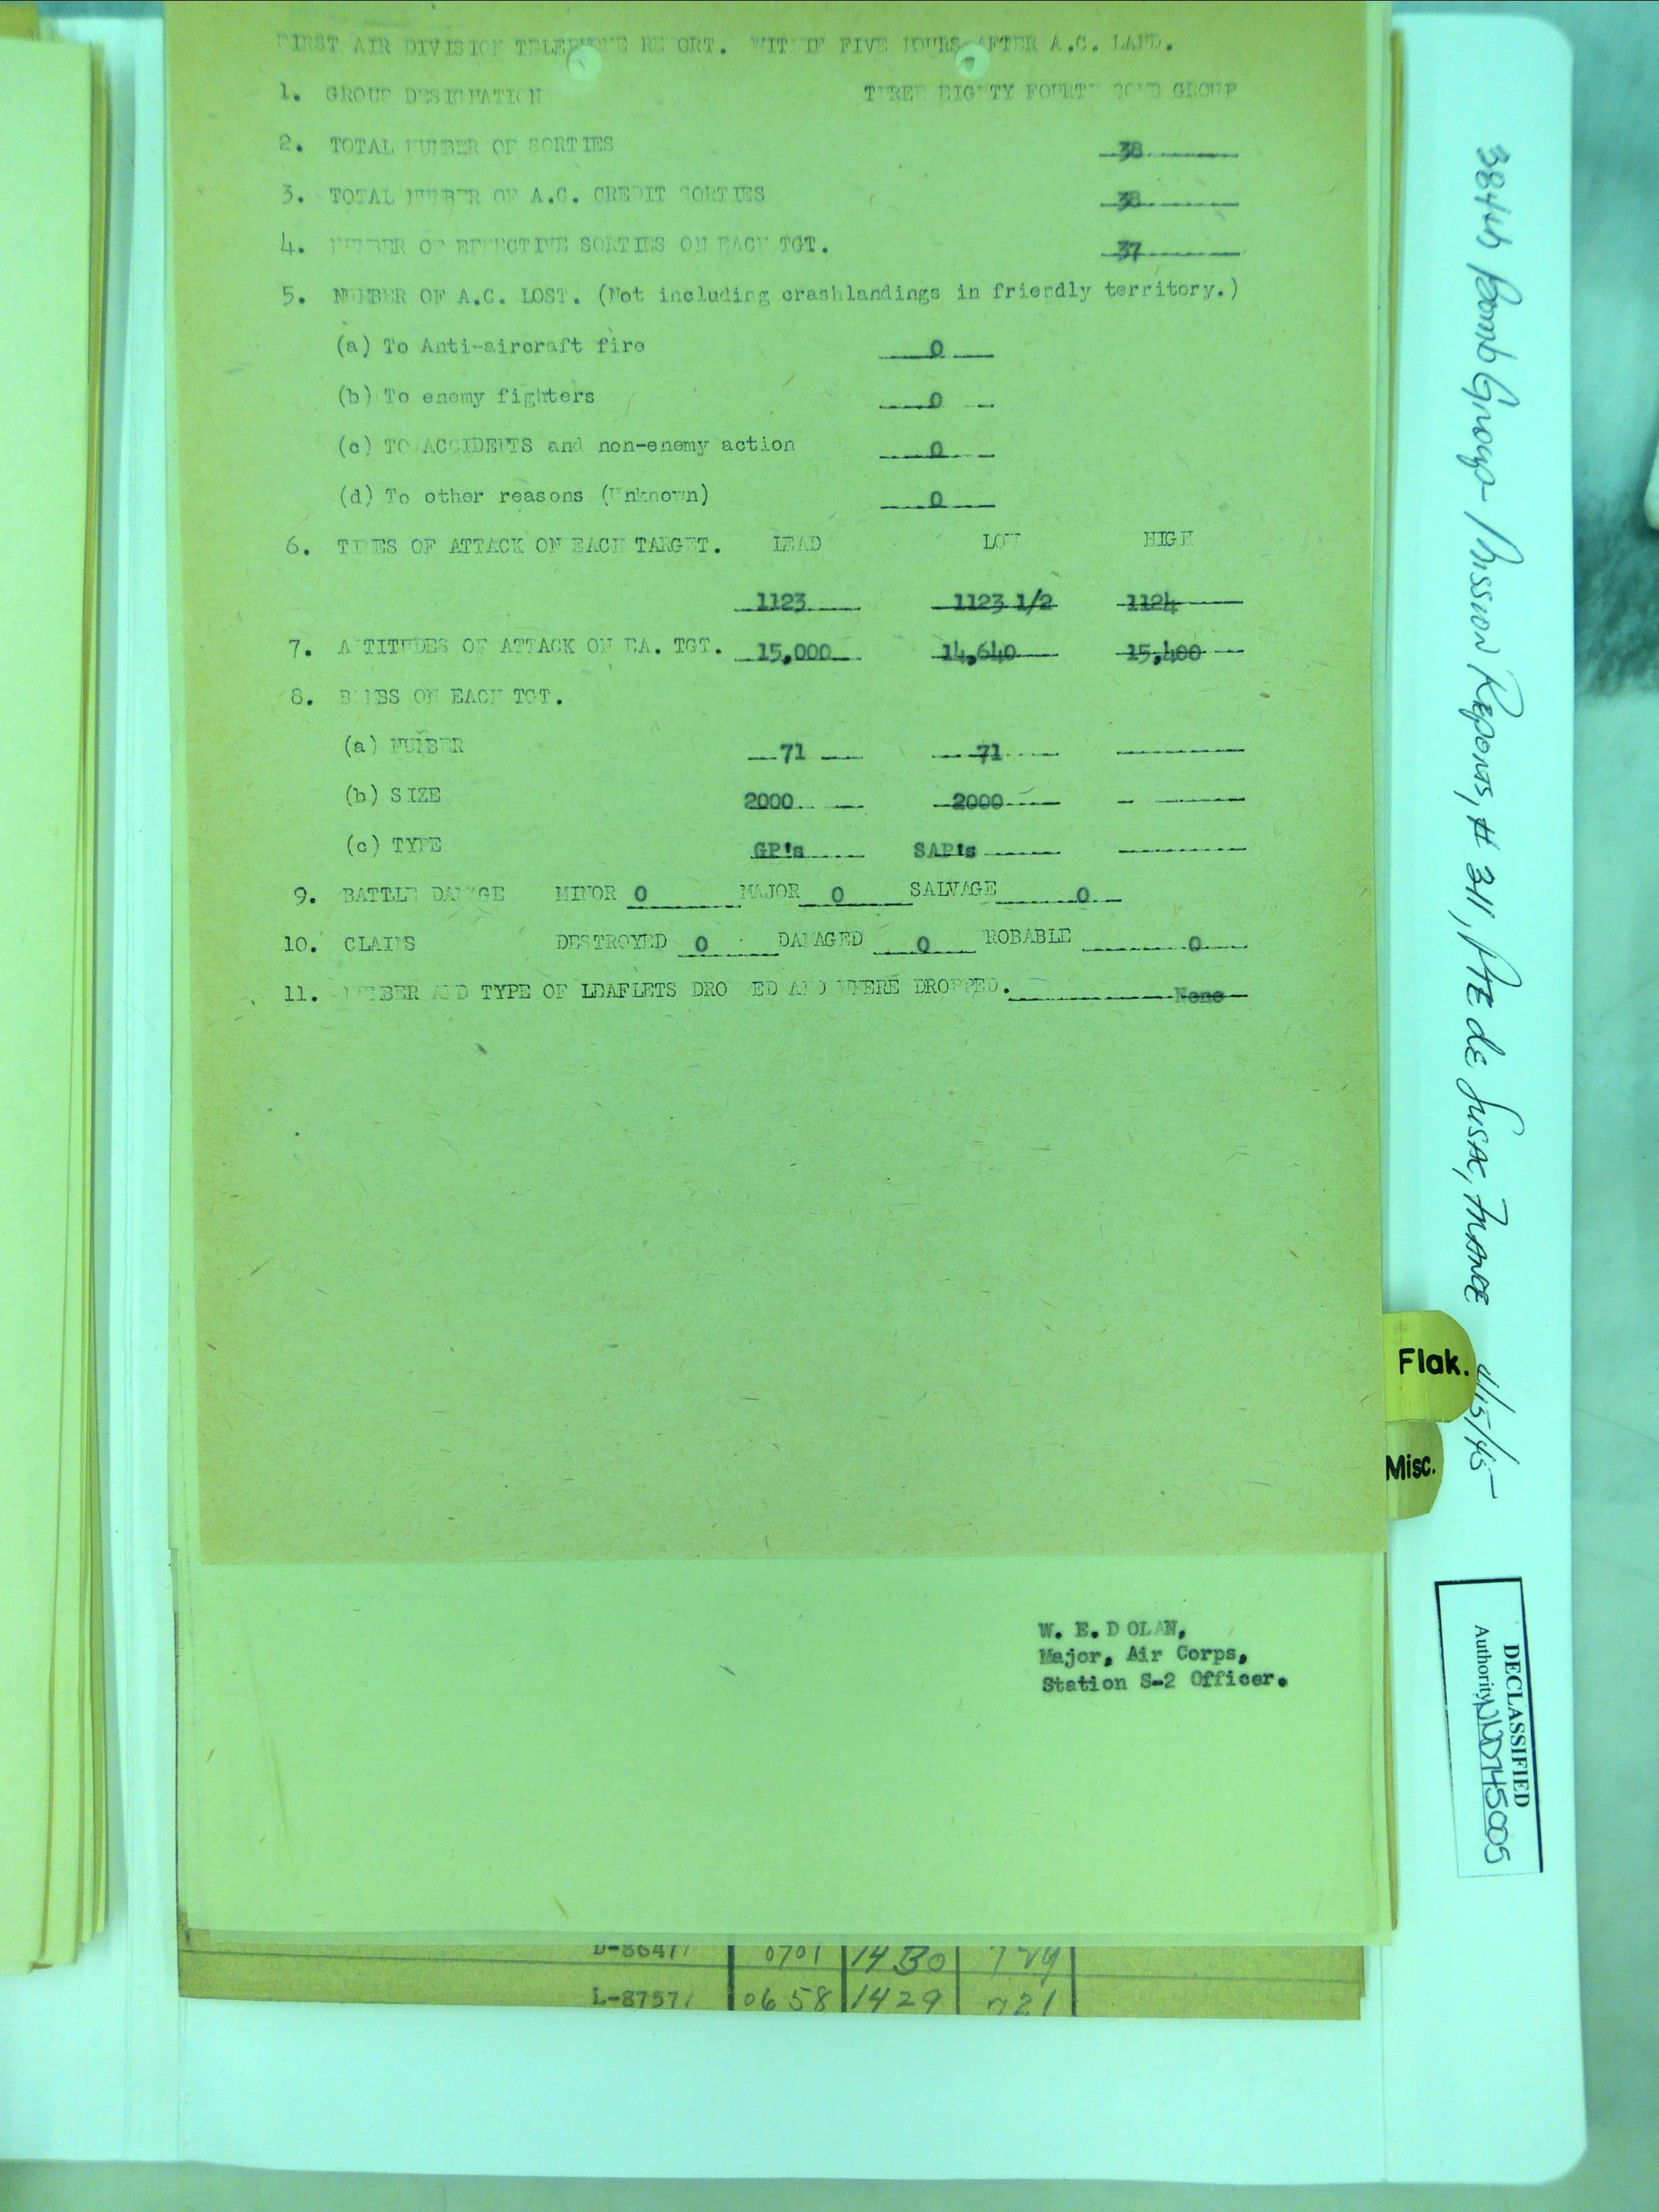 FIRST AIR DIVISION TELEPHONE REPORT. WITHIN FIVE HOURS AFTER A.C. LAND.
1. GROUP DESIGNATION THREE EIGHTY FOURTH BOMB GROUP
2. TOTAL NUMBER OF SORTIES 38
3. TOTAL NUMBER OF A.C. CREDIT SORTIES 38
4. NUMBER OF EFFECTIVE SORTIES ON EACH TGT. 37
5. NUMBER OF A.C. LOST. (Not including crashlandings in friendly territory.)
(a) To Anti-aircraft fire 0
(b) To enemy fighters 0
(c) TO ACCIDENTS and non-enemy action 0
(d) To other reasons (Unknown) 0
6. TIMES OF ATTACK ON EACH TARGET. LEAD LOW HIGH
1123 1123 1/2 1124
7. ALTITUDES OF ATTACK ON EA. TGT. 15,000 14,640 15,400
8. BOMBS ON EACH TGT.
(a) NUMBER 71 71
(b) SIZE 2000 2000
(c) TYPE GP's SAP's
9. BATTLE DAMAGE MINOR 0 MAJOR 0 SALVAGE 0
10. CLAIMS DESTROYED 0 DAMAGED 0 ROBABLE 0
11. NUMBER AND TYPE OF LEAFLETS DROPPED AND WHERE DROPPED. None
W. E. DOLAN,
Major, Air Corps,
Station S-2 Officer.
0701 1430 729
L-8757/ 0658 1429 721
384th Bomb Group - Mission Reports, # 311, Pte de Susac, France 4/15/45
Flak.
Misc.
DECLASSIFIED
Authority NND745005